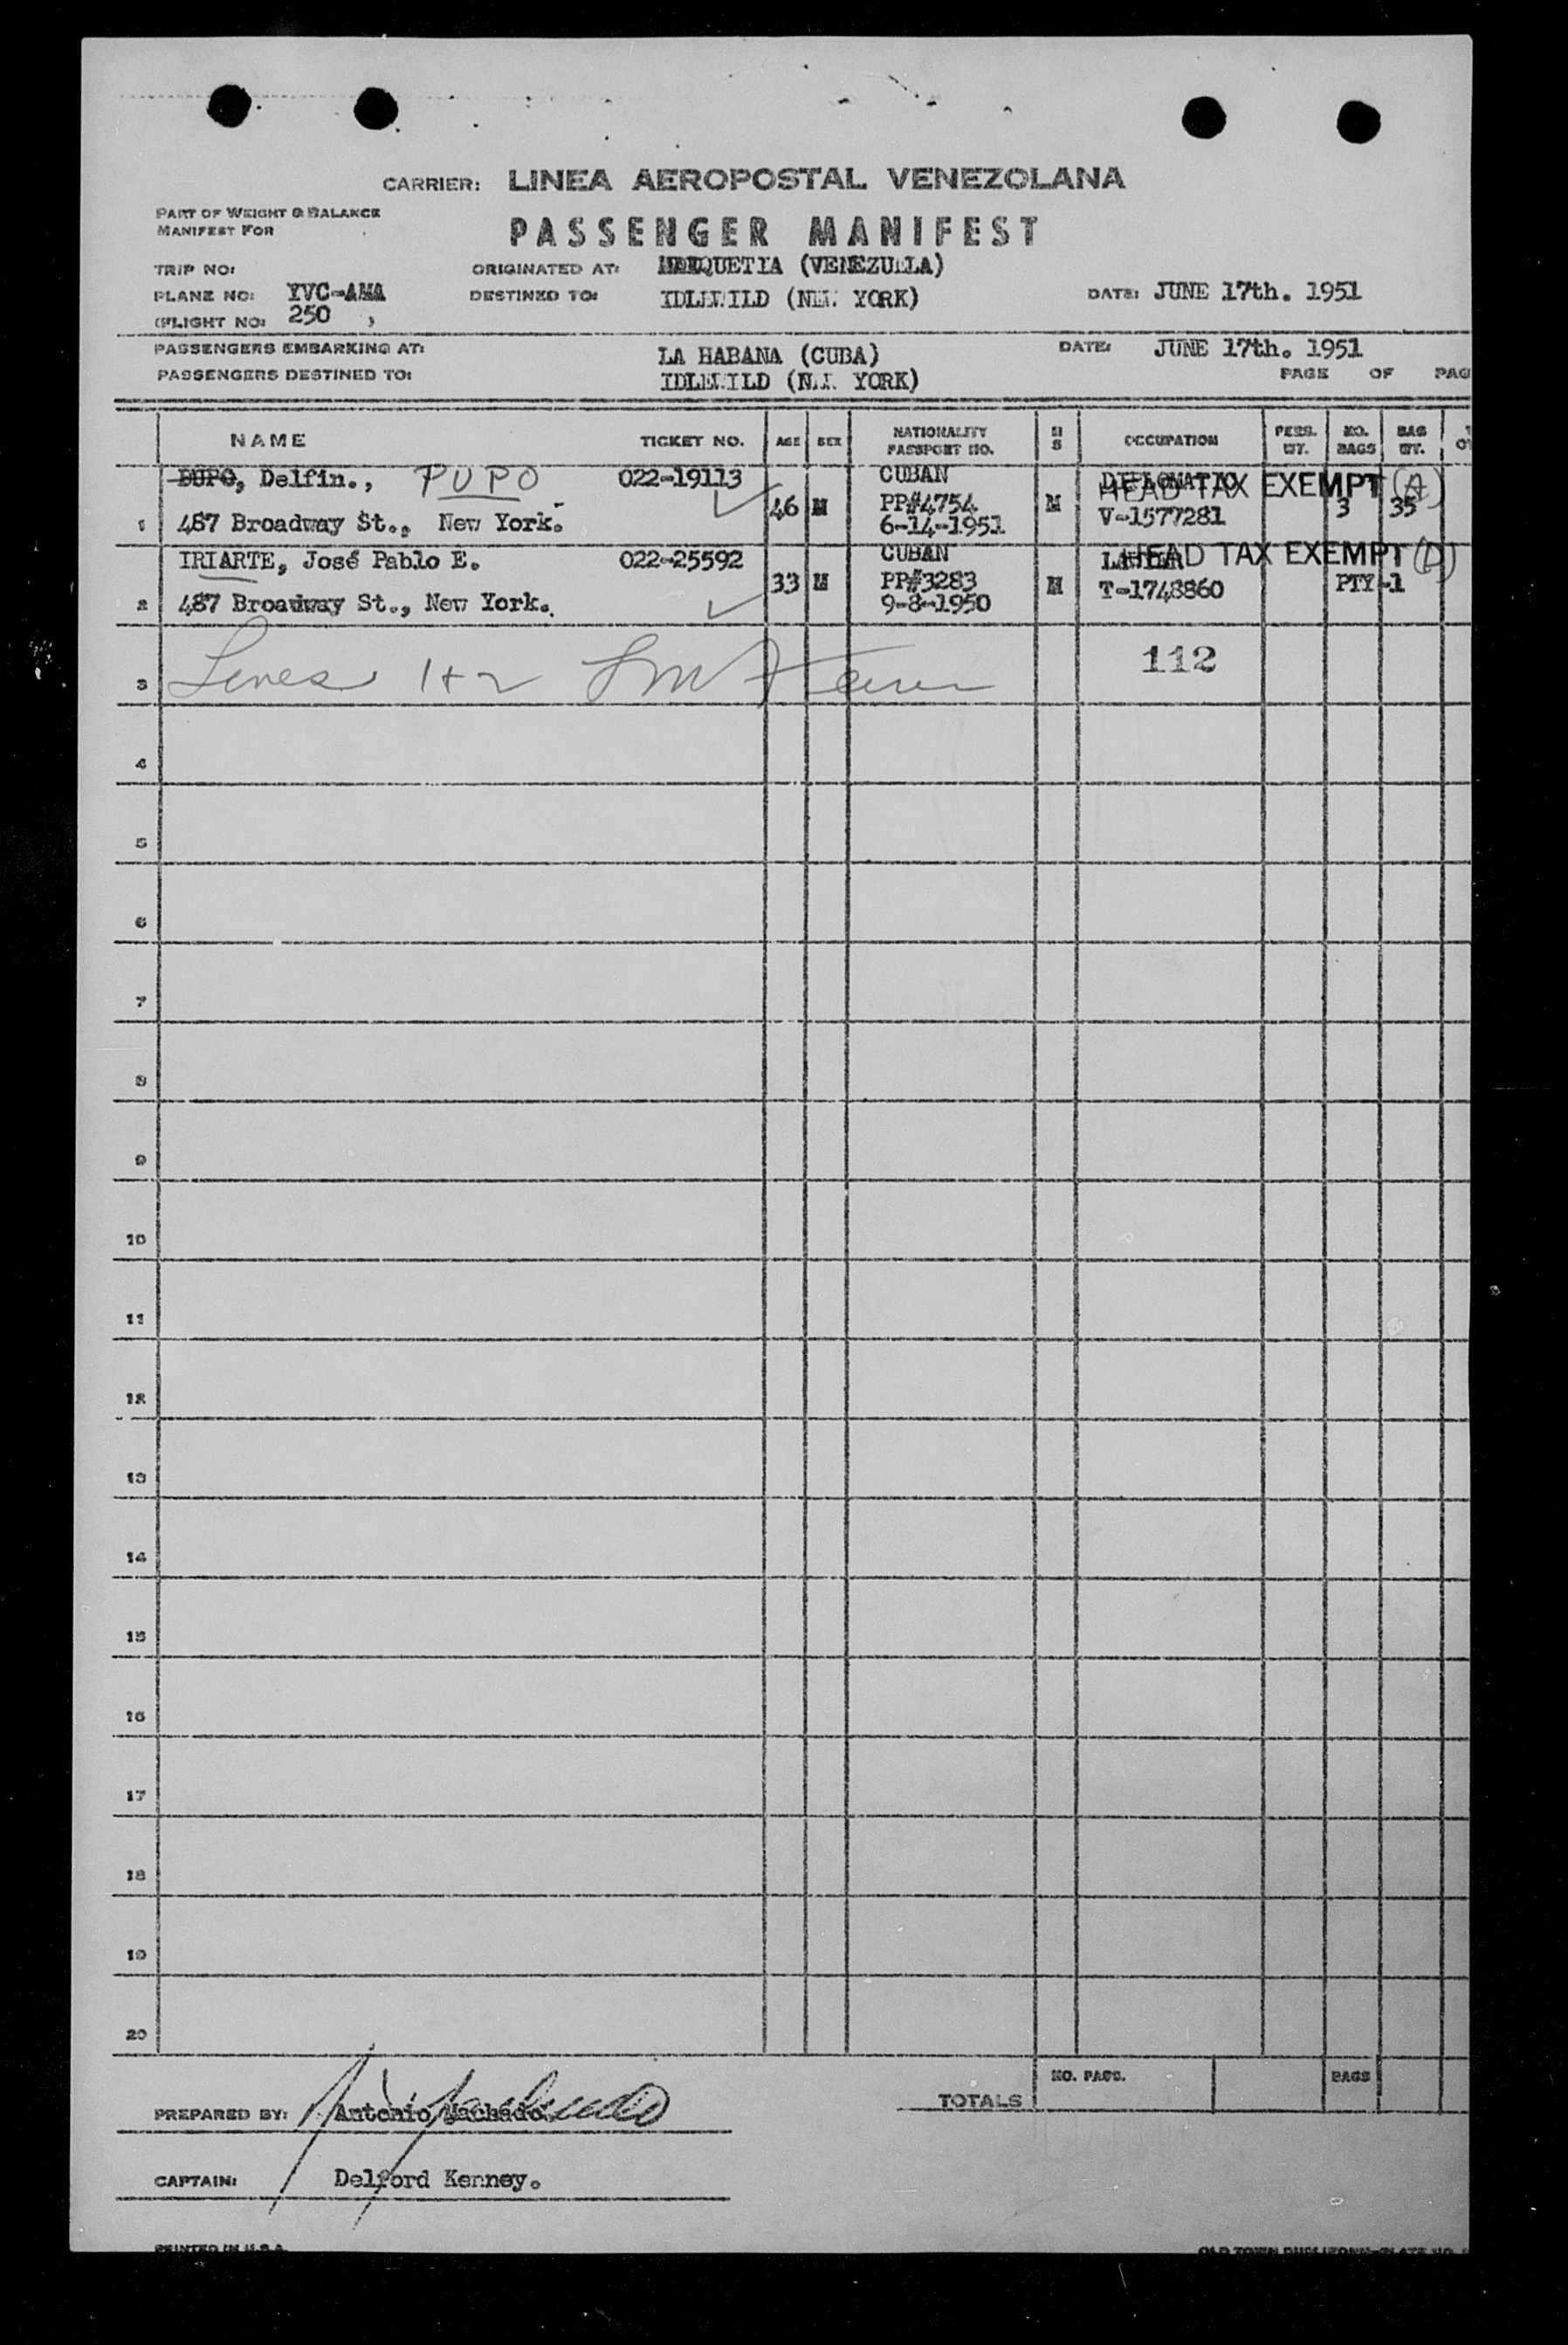 CARRIER: LINEA AEROPOSTAL VENEZOLANA
PART OF WEIGHT & BALANCE
MANIFEST FOR
PASSENGER MANIFEST
TRIP NO:
ORIGINATED AT: MAIQUETIA (VENEZUELA)
PLANE NO: YVC-AMA
DESTINED TO: IDLEWILD (NEW YORK)
DATE: JUNE 17th. 1951
(FLIGHT NO: 250 )
PASSENGERS EMBARKING AT: LA HABANA (CUBA)
DATE: JUNE 17th. 1951
PASSENGERS DESTINED TO: IDLEWILD (NEW YORK)
PAGE OF PAG
NAME TICKET NO. AGE SEX NATIONALITY PASSPORT NO. M S OCCUPATION PERS. WT. NO. BAGS BAG WT.
DUPO, Delfin., PUPO 022-19113 CUBAN HEAD TAX EXEMPT (A)
46 M PP#4754 M 3 35
1 487 Broadway St., New York. 6-14-1951 V-1577281
IRIARTE, José Pablo E. 022-25592 CUBAN HEAD TAX EXEMPT
33 M PP#3283 M T-1748860 PTY-1
2 487 Broadway St., New York. 9-8-1950
3 Lines 1+2 112
4
5
6
7
8
9
10
11
12
13
14
15
16
17
18
19
20
NO. PASS. BAGS
TOTALS
PREPARED BY: Antonio Machado.
CAPTAIN: Delford Kenney.
PRINTED IN U.S.A.